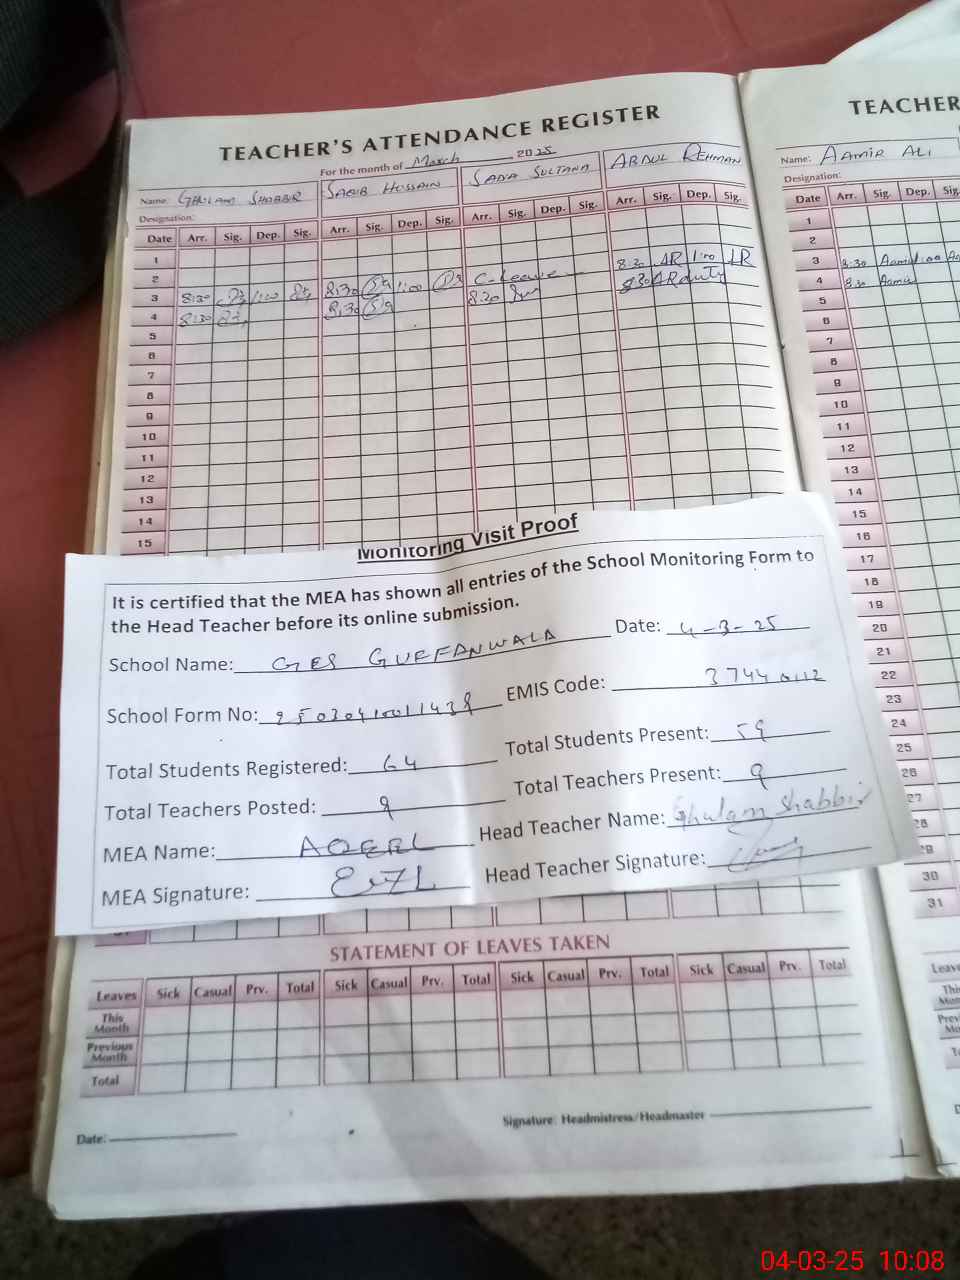 TEACHER'S ATTENDANCE REGISTER
For the month of March 2025
Name: GHULAM SHABBIR SAQIB HUSSAIN SADIA SULTANA ABDUL REHMAN
Designation:
Date Arr. Sig. Dep. Sig. Arr. Sig. Dep. Sig. Arr. Sig. Dep. Sig. Arr. Sig. Dep. Sig.
1
2
3 8:30 1:00 8:30 1:00 C-Leave 8:30 AR 1:00 AR
4 8:30 8:30 8:30 8:30 AR duty
5
6
7
8
9
10
11
12
13
14
15
TEACHER
Name: AAMIR ALI
Designation:
Date Arr. Sig. Dep. Sig
1
2
3 8:30 Aamir 1:00 Aa
4 8:30 Aamir
5
6
7
8
9
10
11
12
13
14
15
16
17
18
19
20
21
22
23
24
25
26
27
28
29
30
31
Monitoring Visit Proof
It is certified that the MEA has shown all entries of the School Monitoring Form to
the Head Teacher before its online submission.
School Name: GES GUFFANWALA Date: 4-3-25
School Form No: EMIS Code:
Total Students Registered: 64 Total Students Present: 59
Total Teachers Posted: 9 Total Teachers Present: 9
MEA Name: Head Teacher Name: Ghulam Shabbir
MEA Signature: Head Teacher Signature:
STATEMENT OF LEAVES TAKEN
Leaves Sick Casual Prv. Total Sick Casual Prv. Total Sick Casual Prv. Total Sick Casual Prv. Total
This Month
Previous Month
Total
Signature: Headmistress/Headmaster
Date:
04-03-25 10:08